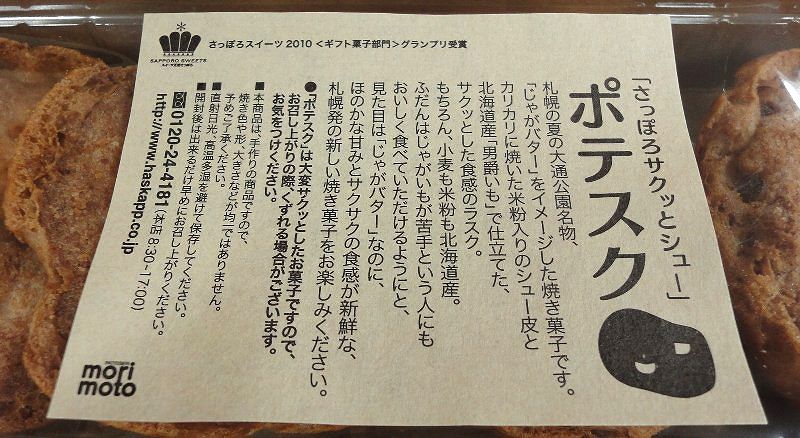 さっぽろスイーツ 2010 <ギフト菓子部門>グランプリ受賞
SAPPORO SWEETS
「さっぽろサクッとシュー」
ポテスク
札幌の夏の大通公園名物、
「じゃがバター」をイメージした焼き菓子です。
カリカリに焼いた米粉入りのシュー皮と
北海道産「男爵いも」で仕立てた、
サクッとした食感のラスク。
もちろん、小麦も米粉も北海道産。
ふだんはじゃがいもが苦手という人にも
おいしく食べていただけるようにと、
見た目は「じゃがバター」なのに、
ほのかな甘みとサクサクの食感が新鮮な、
札幌発の新しい焼き菓子をお楽しみください。
●「ポテスク」は大変サクッとしたお菓子ですので、
お召し上がりの際、くずれる場合がございます。
お気をつけください。
■本商品は、手作りの商品ですので、
焼き色や形、大きさなどが均一ではありません。
予めご了承ください。
■直射日光、高温多湿を避けて保存してください。
■開封後は出来るだけ早めにお召し上がりください。
0120-24-4181(本店8:30~17:00)
http://www.haskapp.co.jp
mori
moto